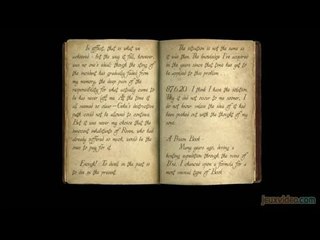 In effect, that is what we
witnessed - but the way it fell, however,
was no one's skill. Though the story of
the incident has gradually faded from
my memory, the deep pain of the
responsibility for what actually came to
be has never left me. At the time it
all seemed so clear - Gehn's destructive
path could not be allowed to continue.
But it was never my choice that the
innocent inhabitants of Riven, who had
already suffered so much, would be the
ones to pay for it.
Enough! To dwell in the past is
to die in the present.
The situation is not the same as
it was then. The knowledge I've acquired
in the years since that time has yet to
be applied to this problem.
87.6.20 I think I have the solution.
Why it did not occur to me sooner, I
do not know unless the idea of it has
been pushed out with the unthinkable
itself.
A Prison Book
Many years ago, during a
hunting expedition through the ruins of
D'ni, I chanced upon a formula for a
most unusual type of Book
jeuxvideo.com